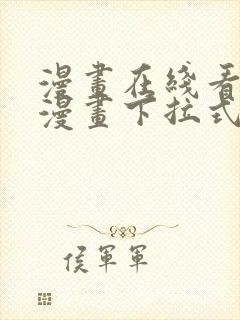 漫畫在綫看
漫畫下拉式
侯軍軍